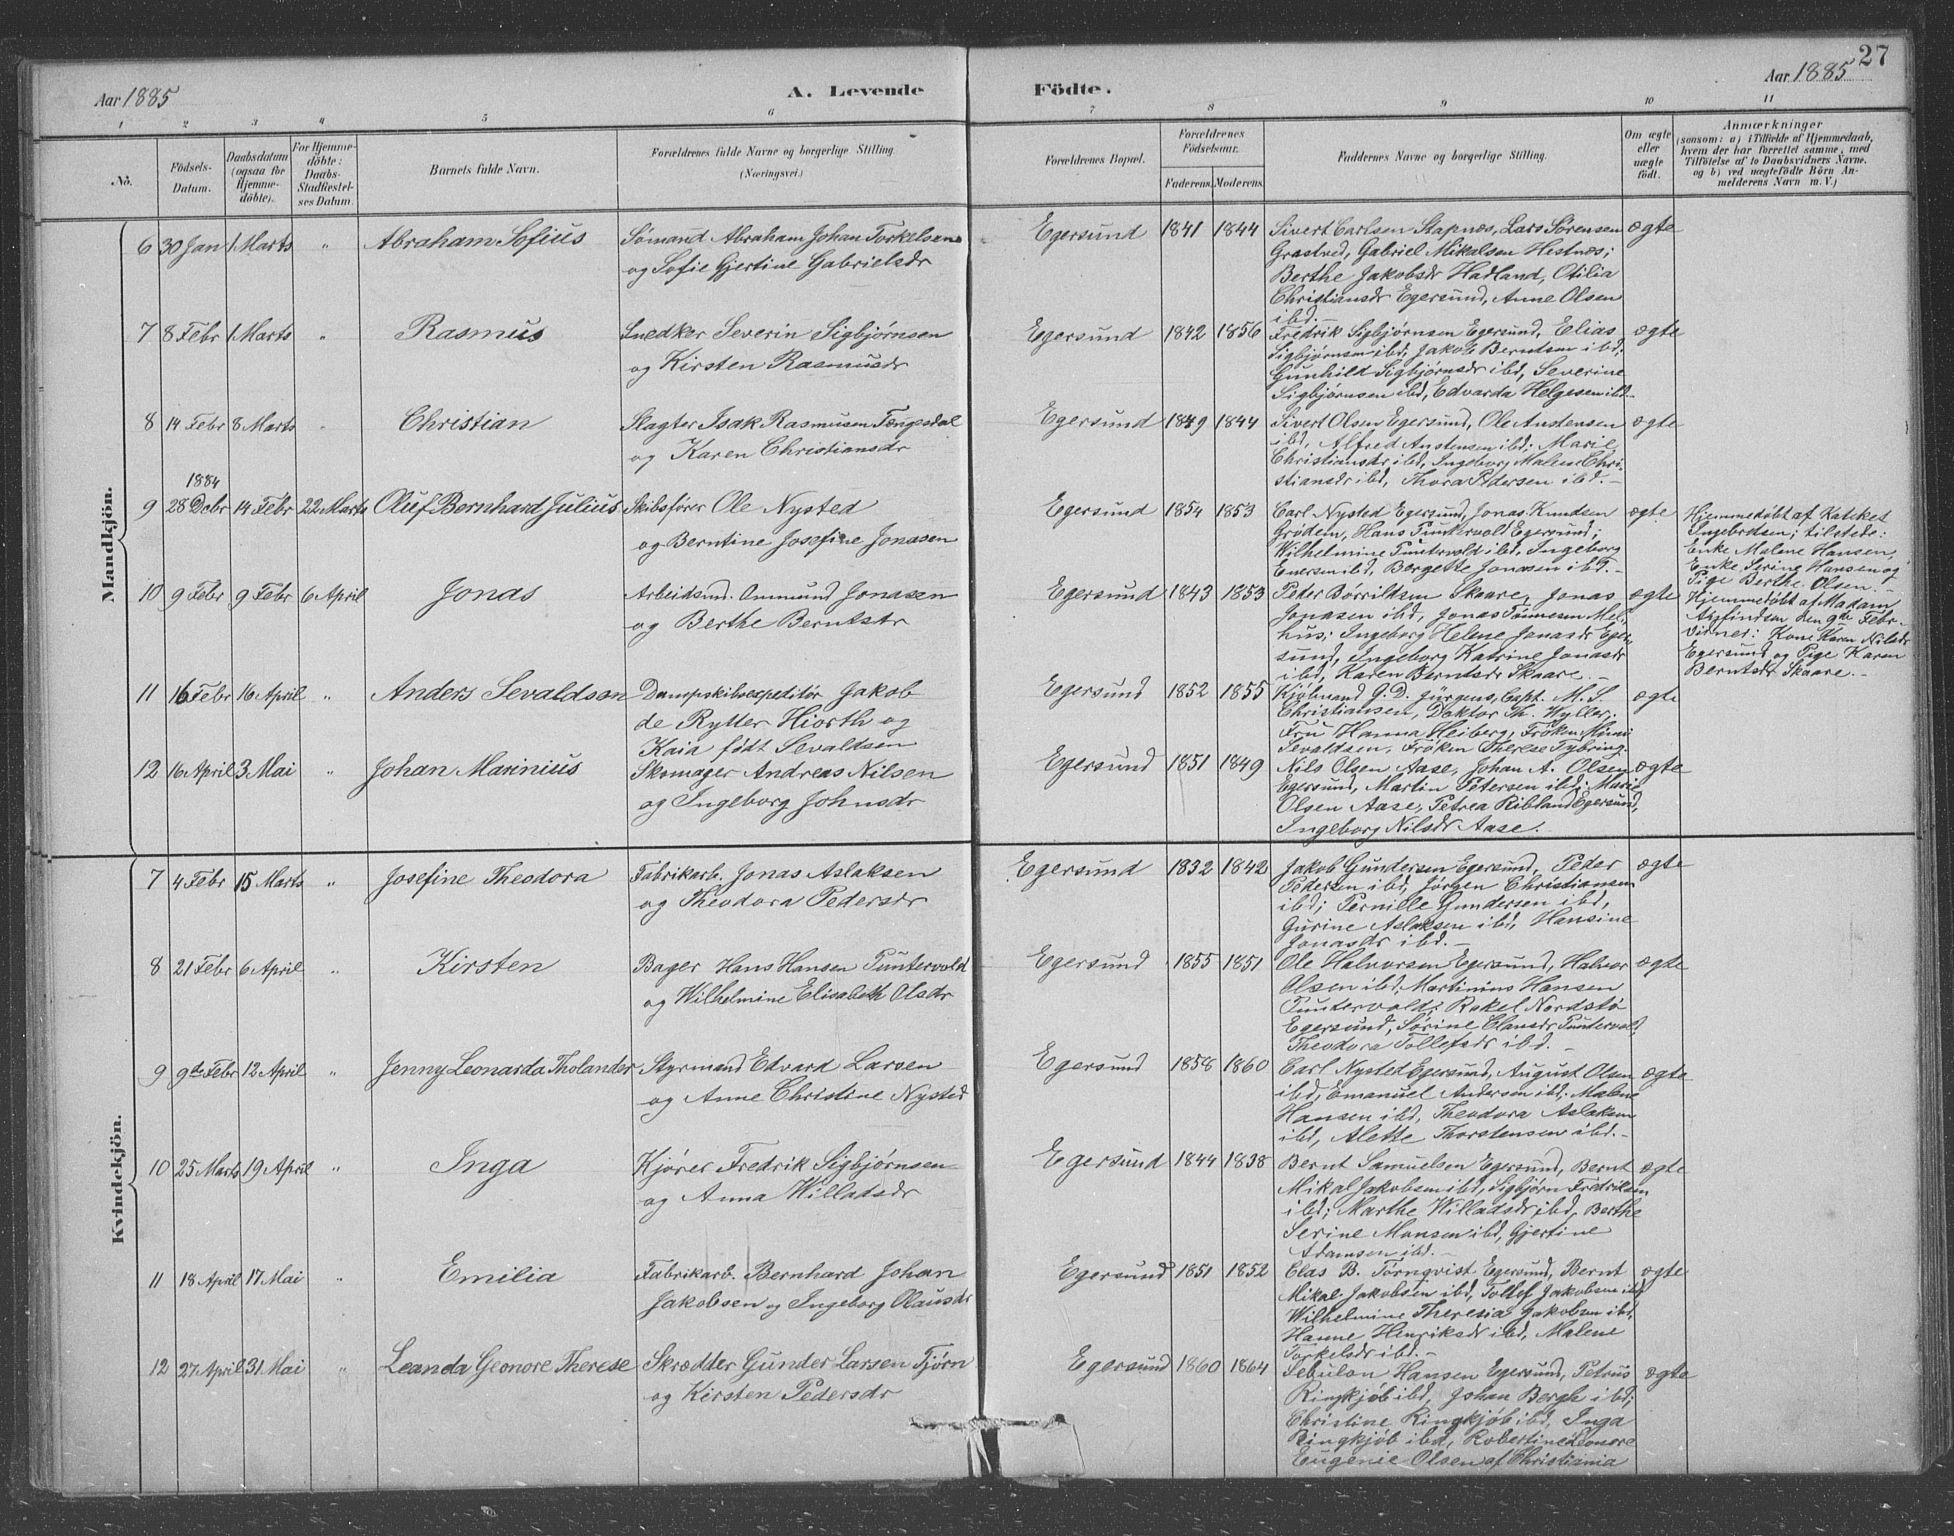 27
Aar 1885
A. Levende
Födte.
Aar 1885
1 2 3 4 5 6 7 8 9 10 11
No.
Födsels-
Datum.
Daabsdatum
(ogsaa for
Hjemme-
döbte).
For Hjemme-
döbte:
Daabs-
Stadfæstel-
ses Datum.
Barnets fulde Navn.
Forældrenes fulde Navne og borgerlige Stilling
(Næringsvei.)
Forældrenes Bopæl.
Forældrenes
Födselsaar.
Faderens. Moderens.
Faddernes Navne og borgerlige Stilling.
Om ægte
eller
uægte
født.
Anmærkninger
(saasom: a) i Tilfælde af Hjemmedaab,
hvem der har forrettet samme, med
Tilföielse af to Daabsvidners Navne.
og b) ved uægtefödte Börn An-
melderens Navn m. V.)
Mandkjön.
6 30 Jan 1 Marts " Abraham Sofius Sømand Abraham Johan Torkelsen Egersund 1841 1844 Sivert Carlsen Stapnæs, Lars Sørensen ægte
og Sofie Gjertine Gabrielsdr Grastved, Gabriel Mikalsen Hestnæs;
Berthe Jakobsdr Hadland, Otilia
Christiansdr Egersund, Anne Olsen
ibd.-
7 8 Febr 1 Marts " Rasmus Snedker Severin Sigbjørnsen Egersund 1842 1856 Fredrik Sigbjørnsen Egersund, Elias ægte
og Kirsten Rasmusdr Sigbjørnsen ibd, Jakob Berntsen ibd;
Gunhild Sigbjørnsdr ibd, Severine
Sigbjørnsen ibd, Edvarda Helgesen ibd.-
8 14 Febr 8 Marts " Christian Slagter Isak Rasmusen Tengesdal Egersund 1849 1844 Sivert Olsen Egersund, Ole Austensen ægte
og Karen Christiansdr ibd, Alfred Austensen ibd; Marie
Christiansdr ibd, Ingeborg Malene Chri-
stiansdr ibd, Thora Pedersen ibd.-
1884
9 28 Decbr 14 Febr 22 Marts Oluf Bernhard Julius Skibsfører Ole Nysted Egersund 1854 1853 Carl Nysted Egersund, Jonas Knudsen ægte
og Berntine Josefine Jonasen Grødem, Hans Puntervold Egersund;
Wilhelmine Puntervold ibd, Ingeborg
Enersen ibd, Bergette Jonasen ibd.-
Hjemmedøbt af Kateket
Ingebretsen; tilstede:
Enke Malene Hansen,
Enke Serine Hansen og
Pige Berthe Olsen.-
10 9 Febr 9 Febr 6 April Jonas Arbeidsmd. Ommund Jonasen Egersund 1843 1853 Peter Børrildsen Skaare, Jonas ægte
og Berthe Berntsdr Jonasen ibd, Jonas Tønnesen Mel-
hus; Ingeborg Helene Jonasdr Eger-
sund, Ingeborg Katrine Jonasdr
ibd, Karen Berntsdr Skaare.-
Hjemmedøbt af Madam
Arfindsen den 9de Febr.
Vidner: Kone Karen Nilsdr
Egersund og Pige Karen
Berntsdr Skaare.-
11 16 Febr 16 April " Anders Sevaldson Dampskibsexpeditør Jakob Egersund 1852 1855 Kjøbmand G. D. Jürgens, Capt. M. S. ægte
de Rytter Hiorth og Christiansen, Doktor Th. Wyller;
Kaia født Sevaldsen Fru Hanna Heiberg, Frøken Mimi
Sevaldsen, Frøken Therese Tybring.
12 16 April 3 Mai " Johan Marinius Skomager Andreas Nilsen Egersund 1851 1849 Nils Olsen Aase, Johan A. Olsen ægte
og Ingeborg Johnsdr Egersund, Martin Petersen ibd; Marie
Olsen Aase, Petrea Ribland Egersund,
Ingeborg Nilsdr Aase.
Kvindekjön.
7 4 Febr 15 Marts " Josefine Theodora Fabrikarb. Jonas Aslaksen Egersund 1832 1842 Jakob Gundersen Egersund, Peder ægte
og Theodora Pedersdr Pedersen ibd, Jørgen Christiansen
ibd; Pernille Gundersen ibd,
Gurine Aslaksen ibd, Hansine
Jonasdr ibd.-
8 21 Febr 6 April " Kirsten Bager Hans Hansen Puntervold Egersund 1855 1851 Ole Halvorsen Egersund, Halvor ægte
og Wilhelmine Elisabeth Olsdr Olsen ibd, Martinius Hansen
Puntervold; Rakel Nordstø
Egersund, Sørine Clausdr Puntervold,
Theodora Tollefsdr ibd.-
9 9de Febr 12 April " Jenny Leonarda Tholander Styrmand Edvard Larsen Egersund 1858 1860 Carl Nysted Egersund, August Olsen ægte
og Anne Christine Nysted ibd, Emanuel Andersen ibd; Malene
Hansen ibd, Theodora Aslaksen
ibd, Alette Thorstensen ibd.-
10 25 Marts 19 April " Inga Kjører Fredrik Sigbjørnsen Egersund 1844 1838 Bernt Samuelsen Egersund, Bernt ægte
og Anna Willadsdr Mikal Jakobsen ibd, Sigbjørn Fredriksen
ibd; Marthe Willadsdr ibd, Berthe
Serine Monsen ibd, Gjertine
Adamsen ibd.-
11 18 April 17 Mai " Emilia Fabrikarb. Bernhard Johan Egersund 1851 1852 Clas B. Törnqvist Egersund, Bernt ægte
Jakobsen og Ingeborg Olausdr Mikal Jakobsen ibd, Tollef Jakobsen ibd;
Wilhelmine Theresia Jakobsen ibd,
Hanne Henriksdr ibd, Malene
Torkelsdr ibd.-
12 27 April 31 Mai " Leanda Geonore Therese Skrædder Gunder Larsen Tjørn Egersund 1860 1864 Sebulon Hansen Egersund, Petrus ægte
og Kirsten Pedersdr Ringkjøb ibd, Johan Bergh ibd;
Christine Ringkjøb ibd, Inga
Ringkjøb ibd, Robertine Leonore
Eugenie Olsen af Christiania